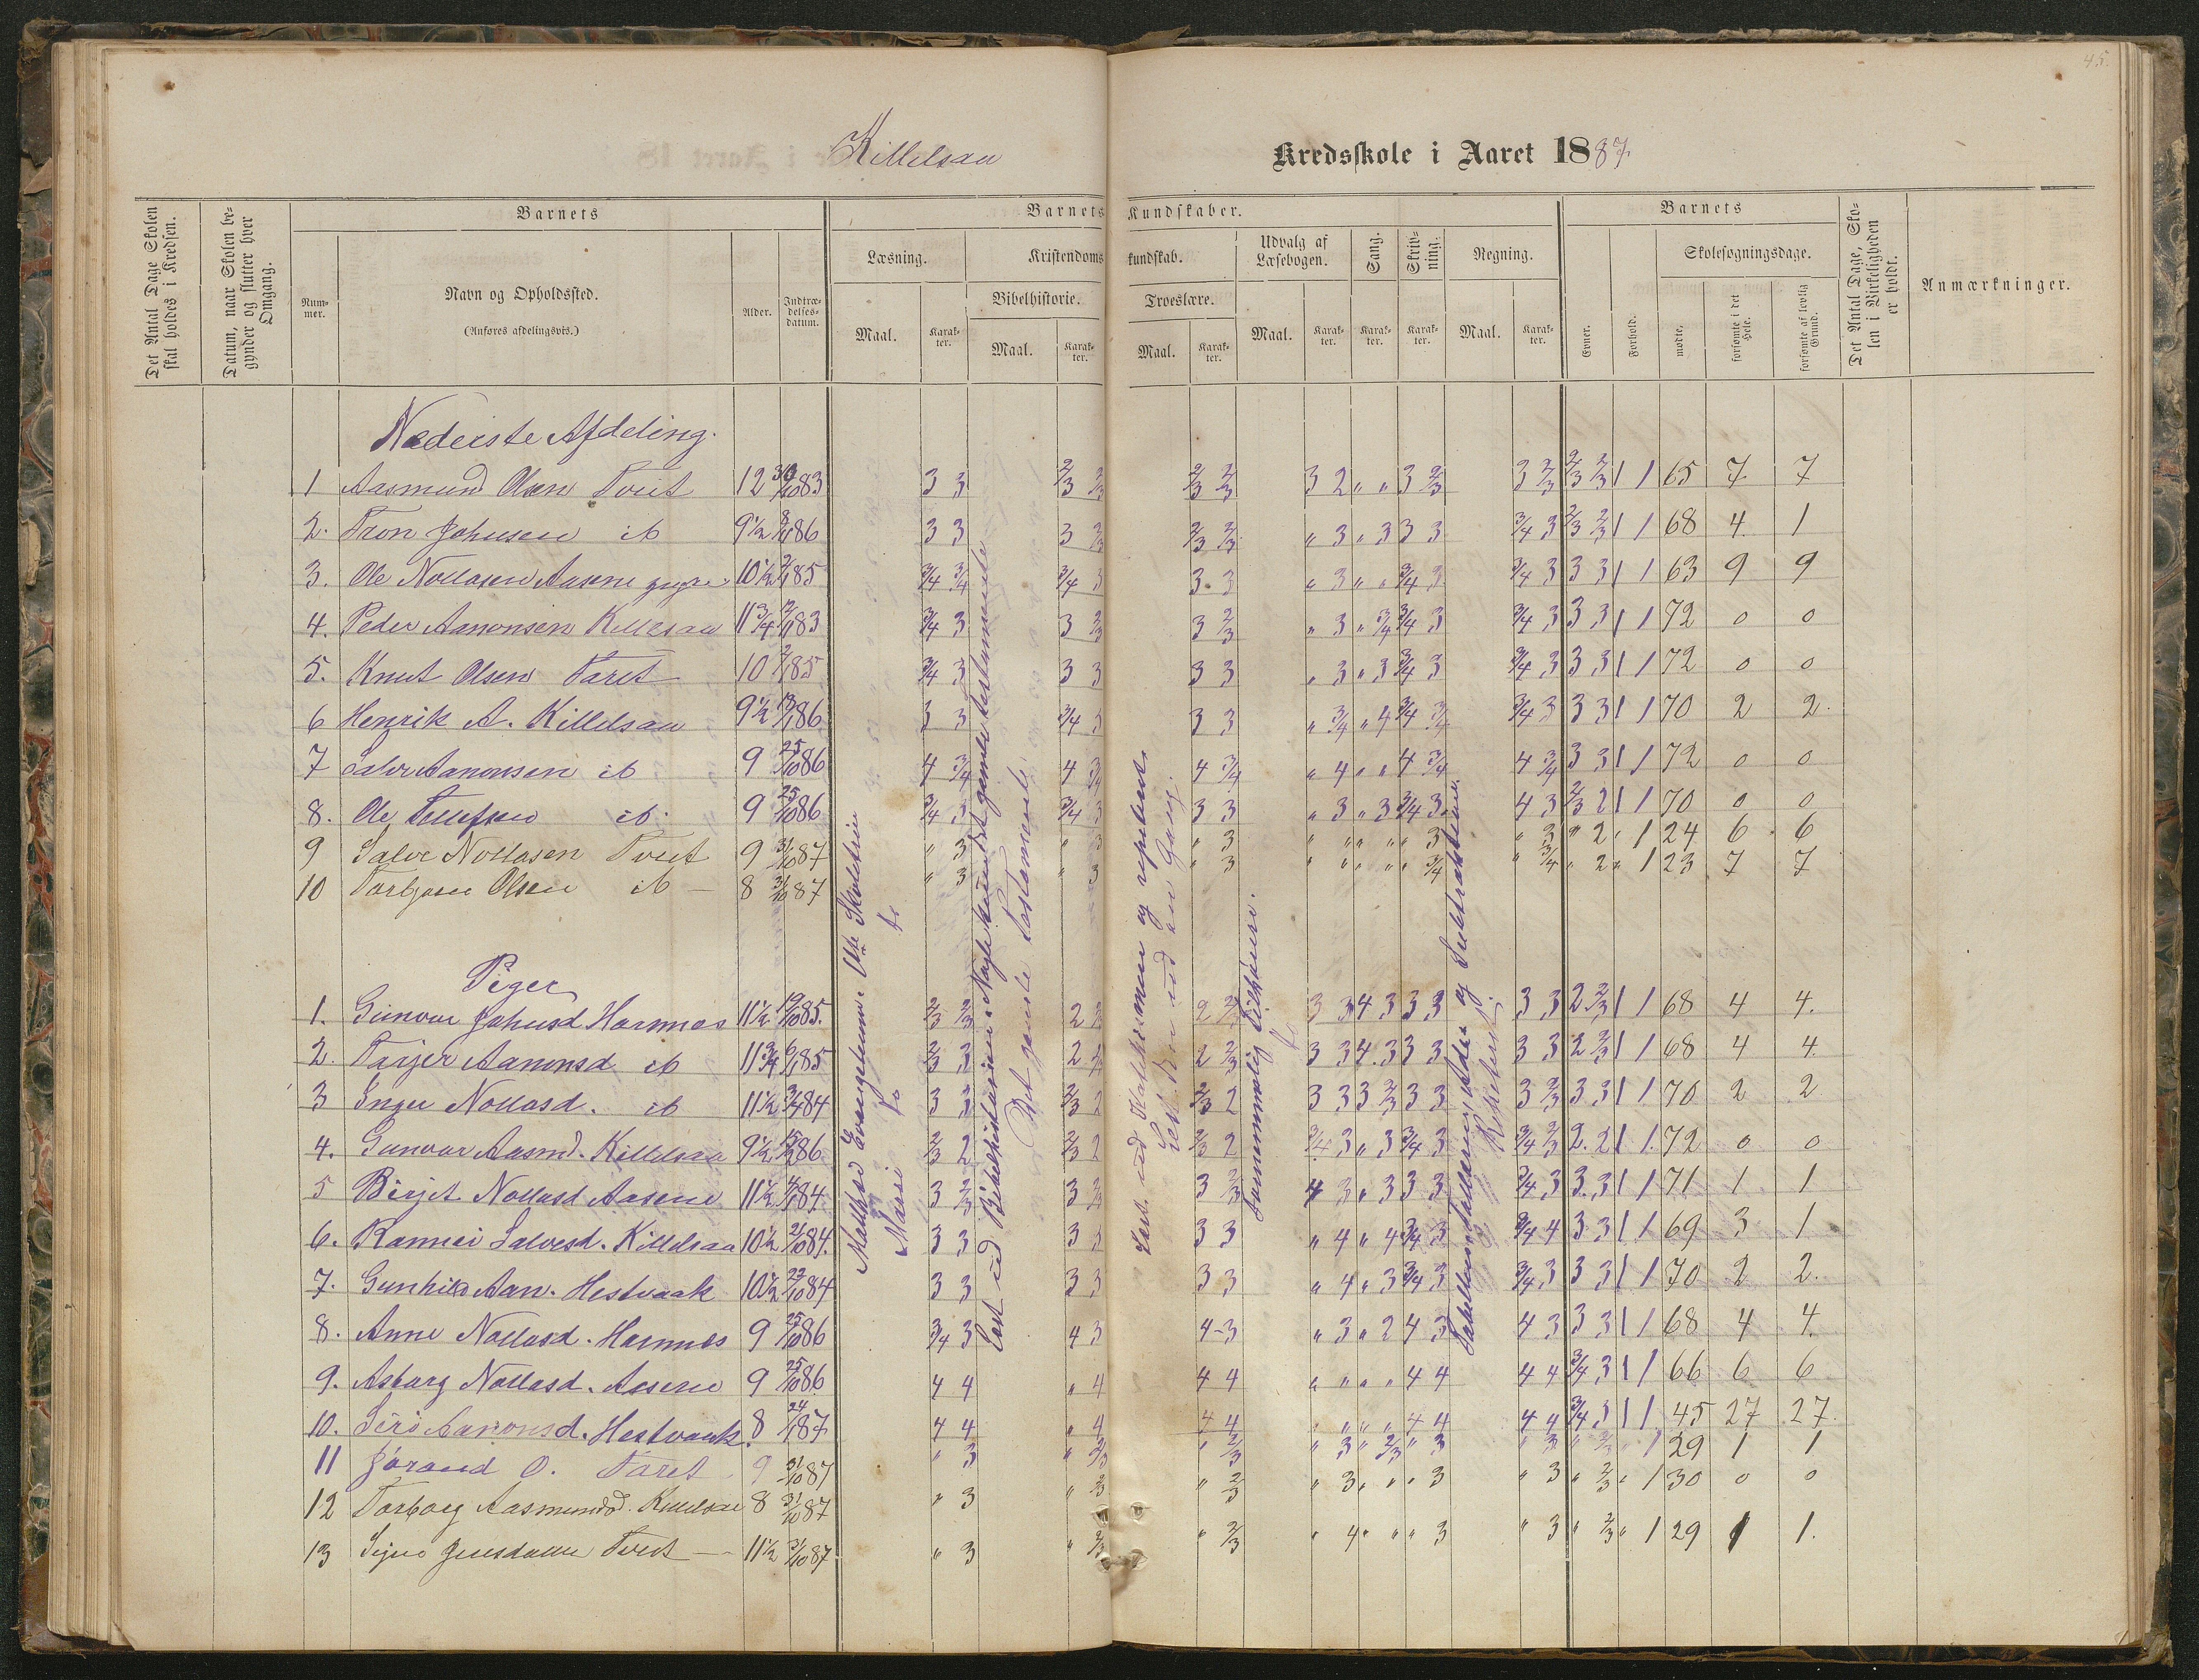 45.
Killelsaa Kredsskole i Aaret 1887.
Det Antal Dage Skolen skal holdes i Kredsen.
Datum, naar Skolen begynder og slutter hver Omgang.
Barnets
Nummer.
Navn og Opholdssted.
(Anføres afdelingsvis.)
Alder.
Indtrædelsesdatum.
Barnets Kundskaber.
Læsning.
Maal.
Karakter.
Kristendomskundskab.
Bibelhistorie.
Maal.
Karakter.
Troeslære.
Maal.
Karakter.
Udvalg af Læsebogen.
Maal.
Karakter.
Sang.
Karakter.
Skrivning.
Karakter.
Regning.
Maal.
Karakter.
Barnets
Evner.
Forhold.
Skolesøgningsdage.
mødte.
forsømte i det Hele.
forsømte af lovlig Grund.
Det Antal Dage, Skolen i Virkeligheden er holdt.
Anmærkninger.
Nederste Afdeling.
1 Aasmund Olsen Tveit 12 83 3 3 2/3 2/3 2/3 2/3 3 2 " " 3 2/3 3 2/3 2/3 2/3 1 1 65 7 7
2. Tron Johnsen ib 9 1/2 86 3 3 3 2/3 2/3 2/3 " 3 " 3 3 3 3/4 3 2/3 2/3 1 1 68 4 1
3. Ole Nollasen Aasene 10 1/2 85 3/4 3/4 3/4 3 3 3 " 3 " " 3/4 3 3/4 3 3 3 1 1 63 9 9
4. Peder Aanonsen Killesaa 11 3/4 83 3/4 3 3 2/3 3 2/3 " 3 " 3/4 3/4 3 3/4 3 3 3 1 1 72 0 0
5. Knut Olsen Taret 10 85 3/4 3 3 3 3 3 " 3 " 3 3/4 3 3/4 3 3 3 1 1 72 0 0
6 Henrik A. Killelsaa 9 1/2 86 3 3 3/4 3 3 3 " 3/4 " 4 3/4 3/4 3/4 3 3 3 1 1 70 2 2.
7 Salve Aanonsen ib 9 25/10 86 4 3/4 4 3/4 4 3/4 " 4 " " 4 3/4 4 3/4 3 3 1 1 72 0 0
8. Ole Tellefsen ib. 9 25/10 86 3/4 3 3/4 3 3 3 " 3 " 3 3/4 3 4 3 2/3 2 1 1 70 0 0
9 Salve Nollasen Tveit 9 31/10 87 " 3 " 3 " 3 " " " " " 3 " 3 " 2 " 1 24 6 6
10 Torbjørn Olsen ib 8 31/10 87 " 3 " 3 " 3 " " " " " 3/4 " 3/4 " 2 " 1 23 7 7
Piger
1. Gunvor Johnsd. Hornnes 11 1/2 85. 2/3 2/3 2 2 2/3 3 3 4 3 3 3 3 3 2 2/3 1 1 68 4 4.
2. Tarjer Aanonsd ib 11 3/4 85 2/3 3 2 2 2/3 3 3 4 3 3 3 3 3 2 2/3 1 1 68 4 4.
3 Inger Nollasd. ib 11 1/2 84 3 3 2/3 2 2/3 2 3 3 3 2/3 3 3 3 2/3 3 3 1 1 70 2 2
4. Gunvor Aasmd. Killelsaa 9 1/2 86 2/3 2 2/3 2 2/3 2 3/4 3 " 3 3/4 3 3/4 2/3 2. 2 1 1. 72 0 0
5 Birjet Nollasd Aasene 11 1/2 84. 3 2/3 3 2/3 3 2/3 4 3 " 3 3 3 3/4 3 3. 3 1 1 71 1 1
6. Rannei Salvesd. Killelsaa 10 1/2 21/10 84. 3 3 3 3 3 3 " 4 " 4 3/4 3 3/4 4 3 3 1 1 69 3 1
7. Gunhild Aan. Hestvaak 10 1/2 22/10 84 3 3 3 3 3 3 " 4 " 3 3/4 3 3/4 3 3 3 1 1 70 2 2.
8. Anne Nollasd. Hornnes 9 25/10 86 3/4 3 4 3 4-3 " 3 " 2 4 3 4 3 3 3 1 1 68 4 4.
9. Asbarg Nollasd. Aasene 9 25/10 86 4 4 " 4 4 4 " " " " 4 4 4 4 3/4 3 1 1 66 6 6
10. Siri Aanonsd. Hestvaak. 8 87 4 4 " 4 4 4 " " " " 4 4 4 4 3/4 3 1 1 45 27 27.
11 Jørand O. Taret 9 31/10 87 " 3 " 2/3 " 2/3 " 3 " 2/3 " 3 " 3 " 2/3 " 1 29 1 1
12 Torborg Aasmundsd. Killelsaa 8 31/10 87 " 3 " 2/3 " 2/3 " 3 " " " 3 " 3 " 2/3 " 1 30 0 0
13 Signe Tveit 11 1/2 31/10 87 " 3 " 2/3 " 2/3 " 4 " " " 3 " 3 " 2/3 " 1 29 1 1.
Matthæi Evangelium. Skoletiden
Læst ud Bibelhistorien. Nogle det gamle testamente
Det gamle Testamente.
Læst ud Katekismen og repetert
Læst den ud en Gang.
Sammenmælig Tilhørere.
Tabellen og Subtraktionen.
Repetert